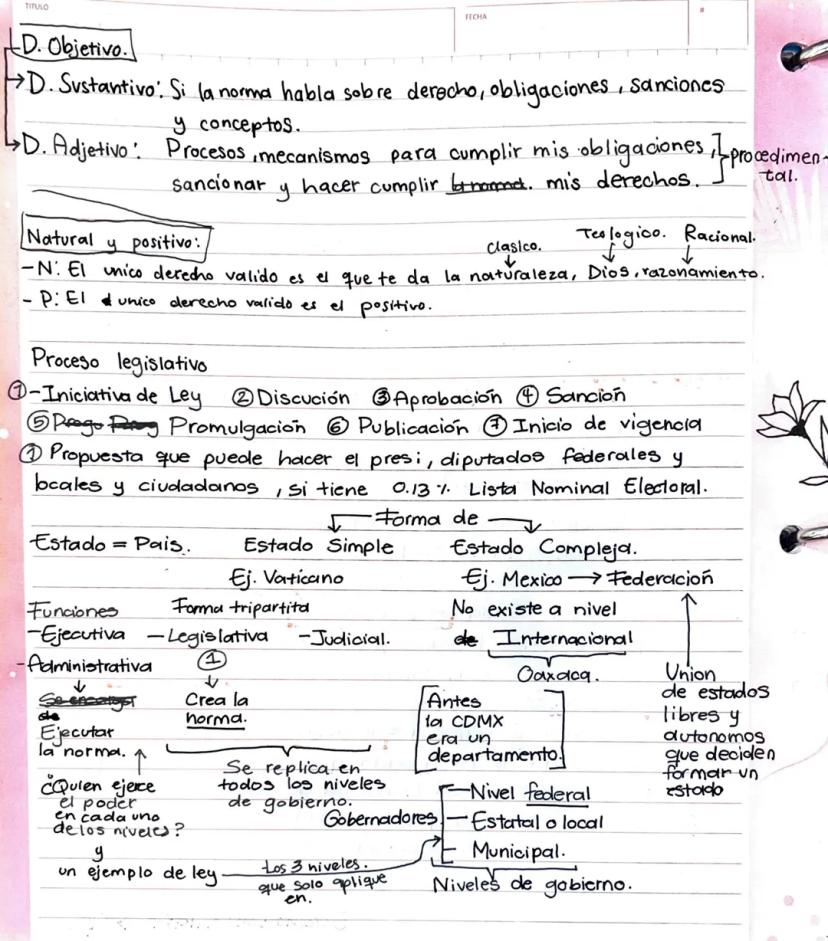 TITULO
FECHA
#
D. Objetivo.
D. Sustantivo: Si la norma habla sobre derecho, obligaciones, sanciones
y conceptos.
D. Adjetivo: Procesos, mecanismos para cumplir mis obligaciones,
sancionar y hacer cumplir mis derechos.
procedimen-
tal.
Natural y positivo:
Clasico. Teologico. Racional.
- N: El unico derecho valido es el que te da la naturaleza, Dios, razonamiento.
- P: El unico derecho valido es el positivo.
Proceso legislativo
① -Iniciativa de Ley ② Discución ③ Aprobación ④ Sanción
⑤ Promulgación ⑥ Publicación ⑦ Inicio de vigencia
① Propuesta que puede hacer el presi, diputados federales y
locales y ciudadanos, si tiene 0.13 % Lista Nominal Electoral.
Forma de
Estado = Pais. Estado Simple Estado Compleja.
Ej. Vaticano Ej. Mexico → Federación
Funciones Forma tripartita No existe a nivel
-Ejecutiva -Legislativa -Judicial. Internacional
-Administrativa ①
Oaxaca.
Ejecutar
la norma.
Crea la
norma.
Antes
la CDMX
era un
departamento.
Union
de estados
libres y
autonomos
que deciden
formar un
estado
Se replica en
todos los niveles
de gobierno.
¿Quien ejerce
el poder
en cada uno
de los niveles?
y
un ejemplo de ley
Los 3 niveles.
que solo aplique
en.
Gobernadores
Nivel federal
Estatal o local
Municipal.
Niveles de gobierno.